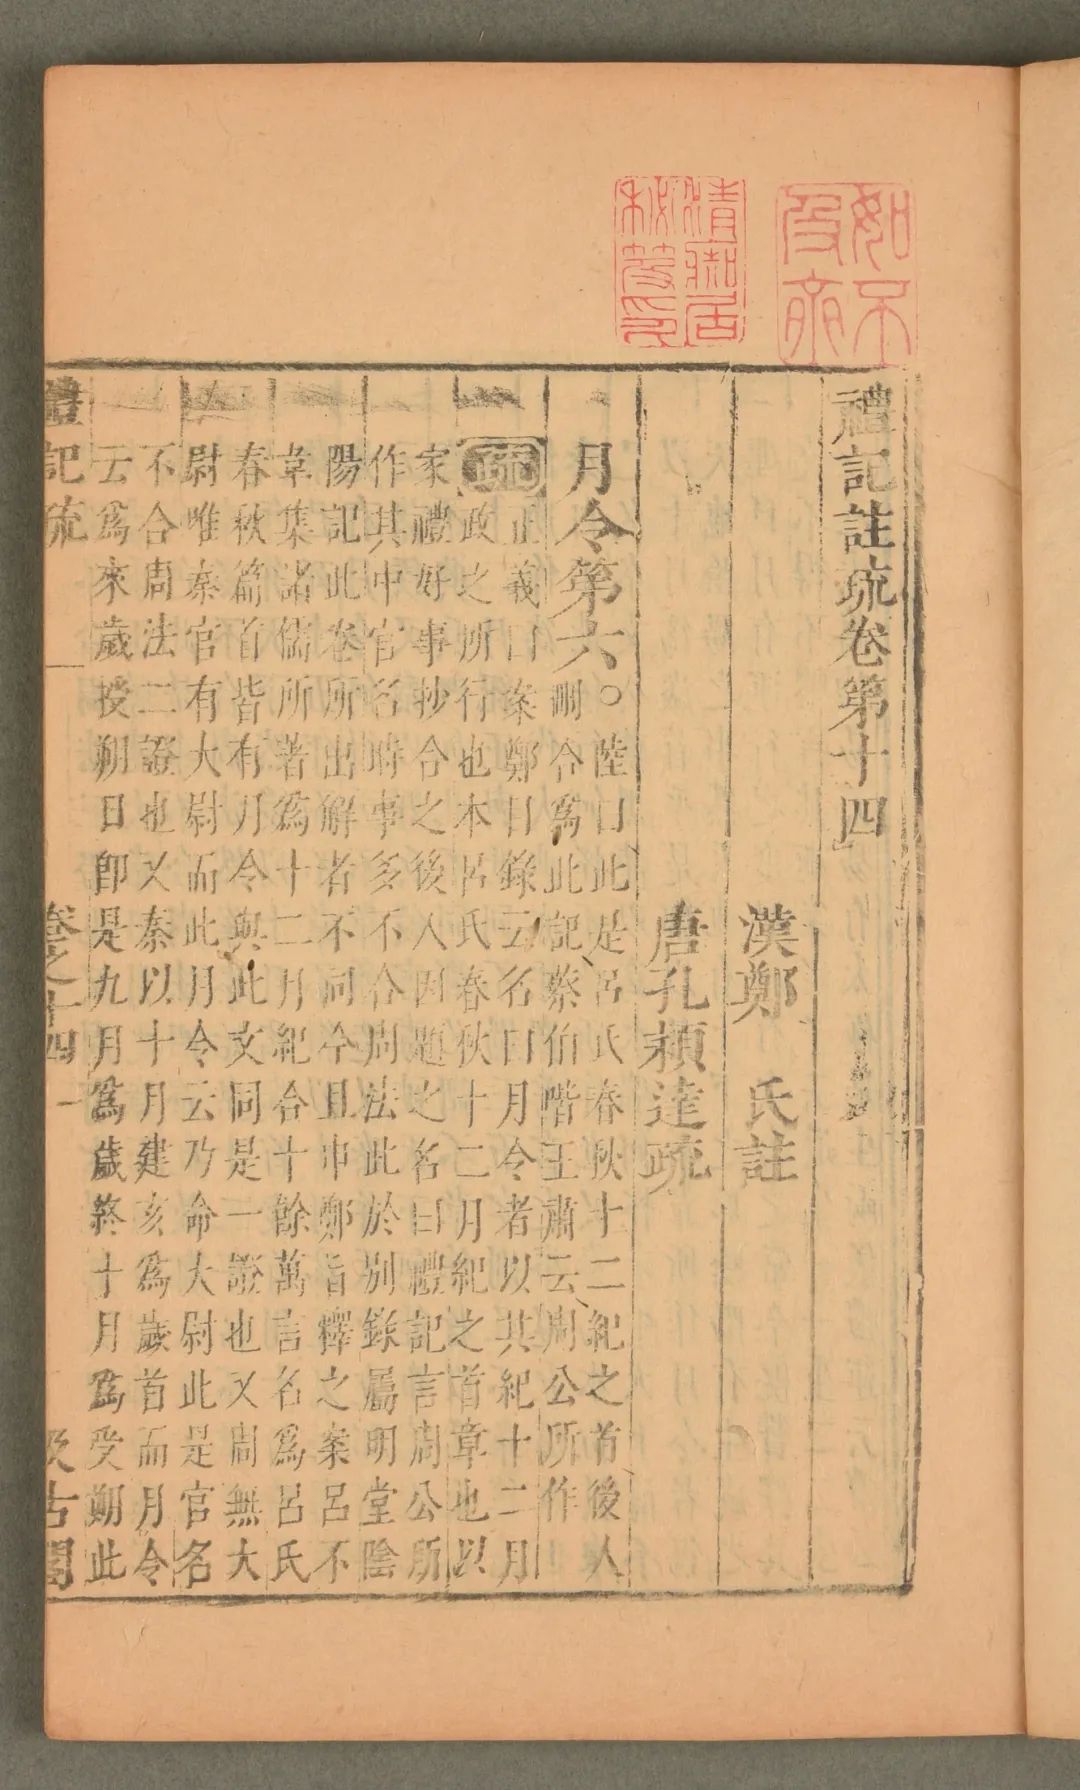 如不
及齋
禮記註疏卷第十四
漢鄭　氏註
唐孔穎達疏
月令第六○陸曰此是呂氏春秋十二紀之首後人
刪合爲此記蔡伯喈王肅云周公所作
疏正義曰案鄭目錄云名曰月令者以其紀十二月
政之所行也本呂氏春秋十二月紀之首章也以
家禮好事抄合之後人因題之名曰禮記言周公所
作其中官名時事多不合周法此於別錄屬明堂陰
陽記此卷所出解者不同今且申鄭旨釋之案呂不
韋集諸儒所著爲十二月紀合十餘萬言名爲呂氏
春秋篇首皆有月令與此文同是一證也又周無大
尉唯秦官有大尉而此月令云乃命大尉此是官名
不合周法二證也又秦以十月建亥爲歲首而月令
云爲來歲授朔日卽是九月爲歲終十月爲受朔此
禮記疏　卷之十四　一　汲古閣